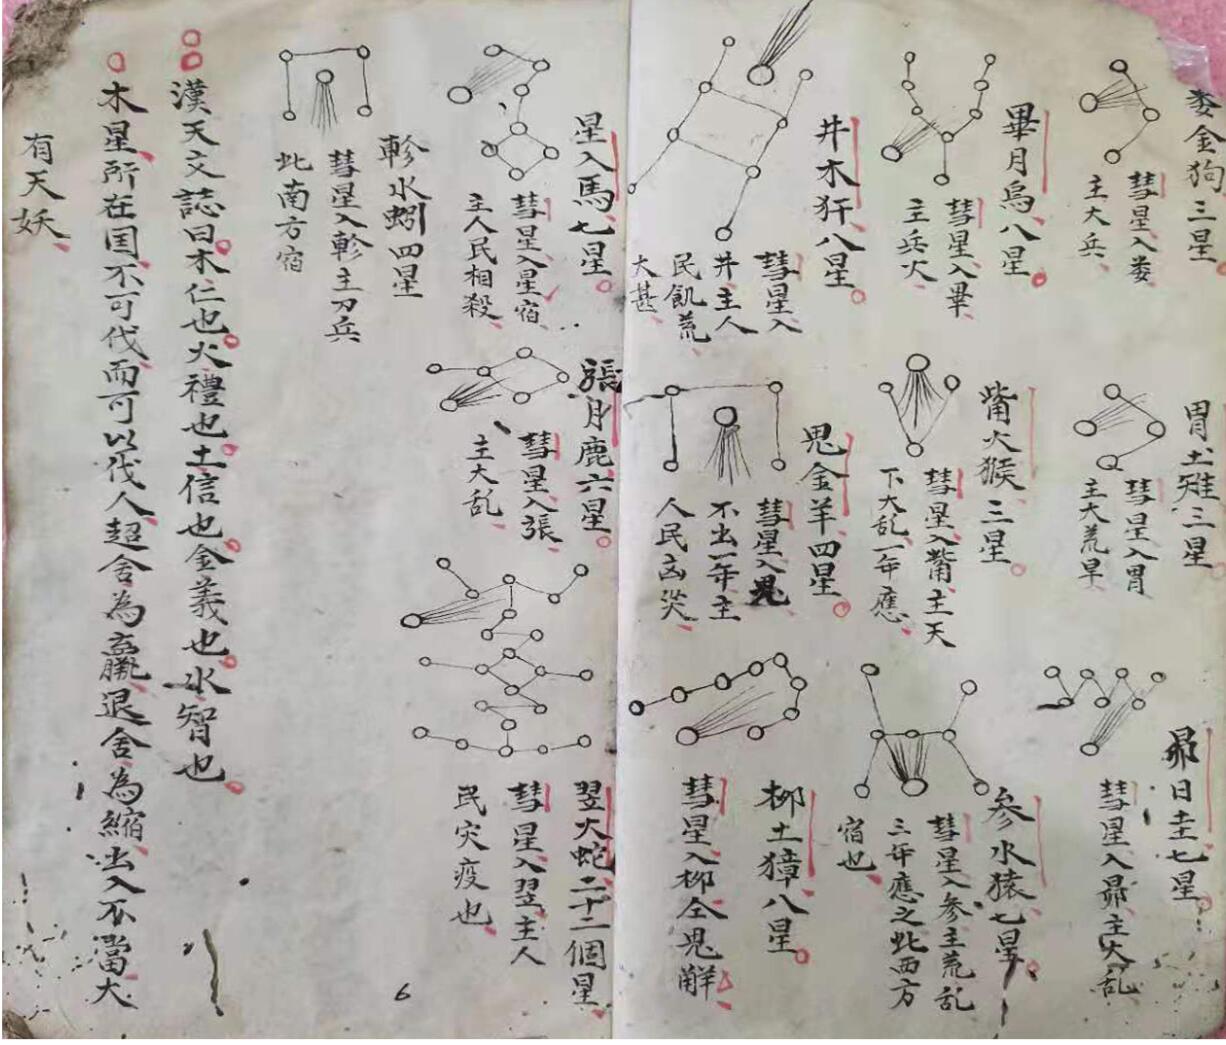 婁金狗三星
彗星入婁
主大兵
胃土雉三星
彗星入胃
主大荒旱
昴日圭七星
彗星入昴主大乱
畢月烏八星
彗星入畢
主兵火
觜火猴三星
彗星入觜主天
下大乱一年應
参水猿七星
彗星入参主荒乱
三年應之此西方
宿也
井木犴八星
彗星入
井主人
民飢荒
大甚
鬼金羊四星
彗星入鬼
不出一年主
人民凶災
柳土獐八星
彗星入柳仝鬼解
星入馬七星
彗星入星宿
主人民相殺
張月鹿六星
彗星入張
主大乱
翌火蛇二十二個星
彗星入翌主人
民灾疫也
軫水蚓四星
彗星入軫主刀兵
此南方宿
漢天文誌曰木仁也火禮也土信也金義也水智也
木星所在国不可伐而可以伐人超舍為贏退舍為縮出入不當大
有天妖
6